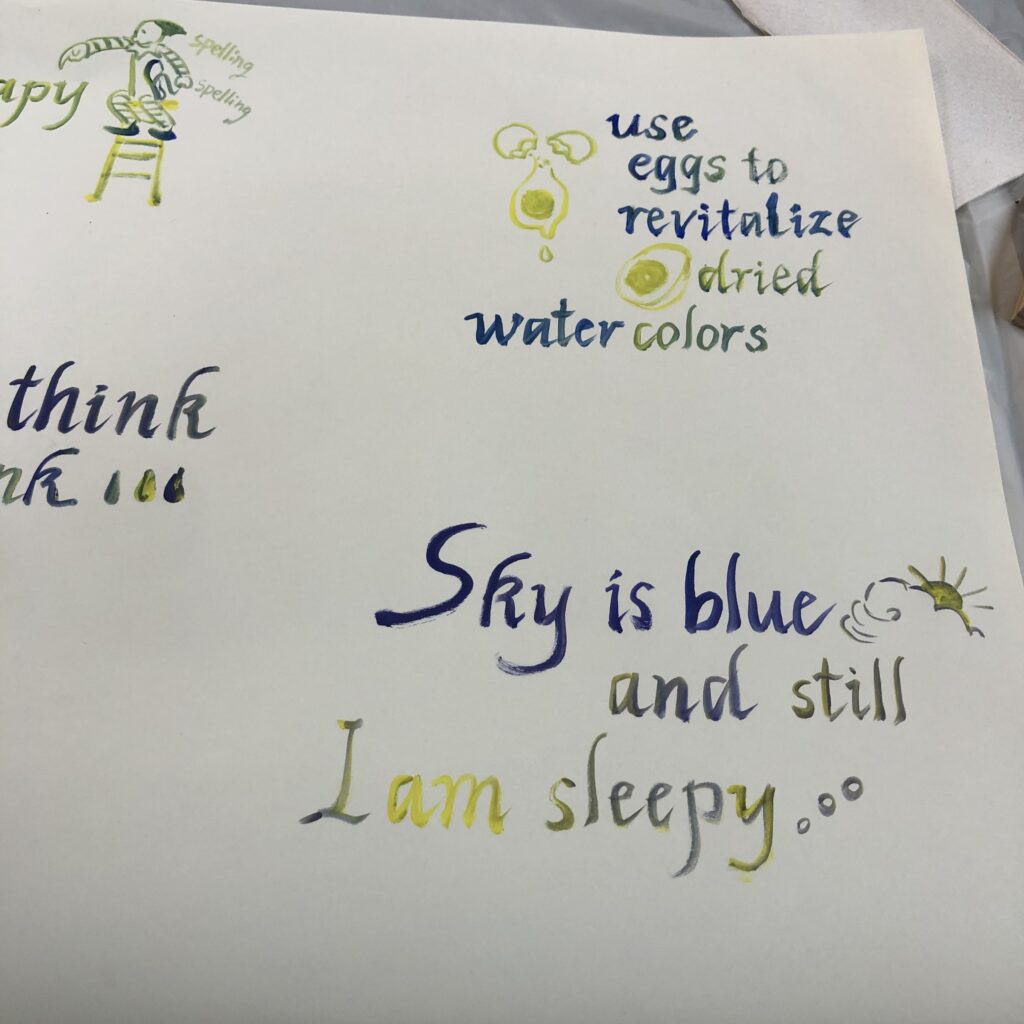 apy
spelling
spelling
use
eggs to
revitalize
dried
water colors
think
nk
Sky is blue
and still
I am sleepy...